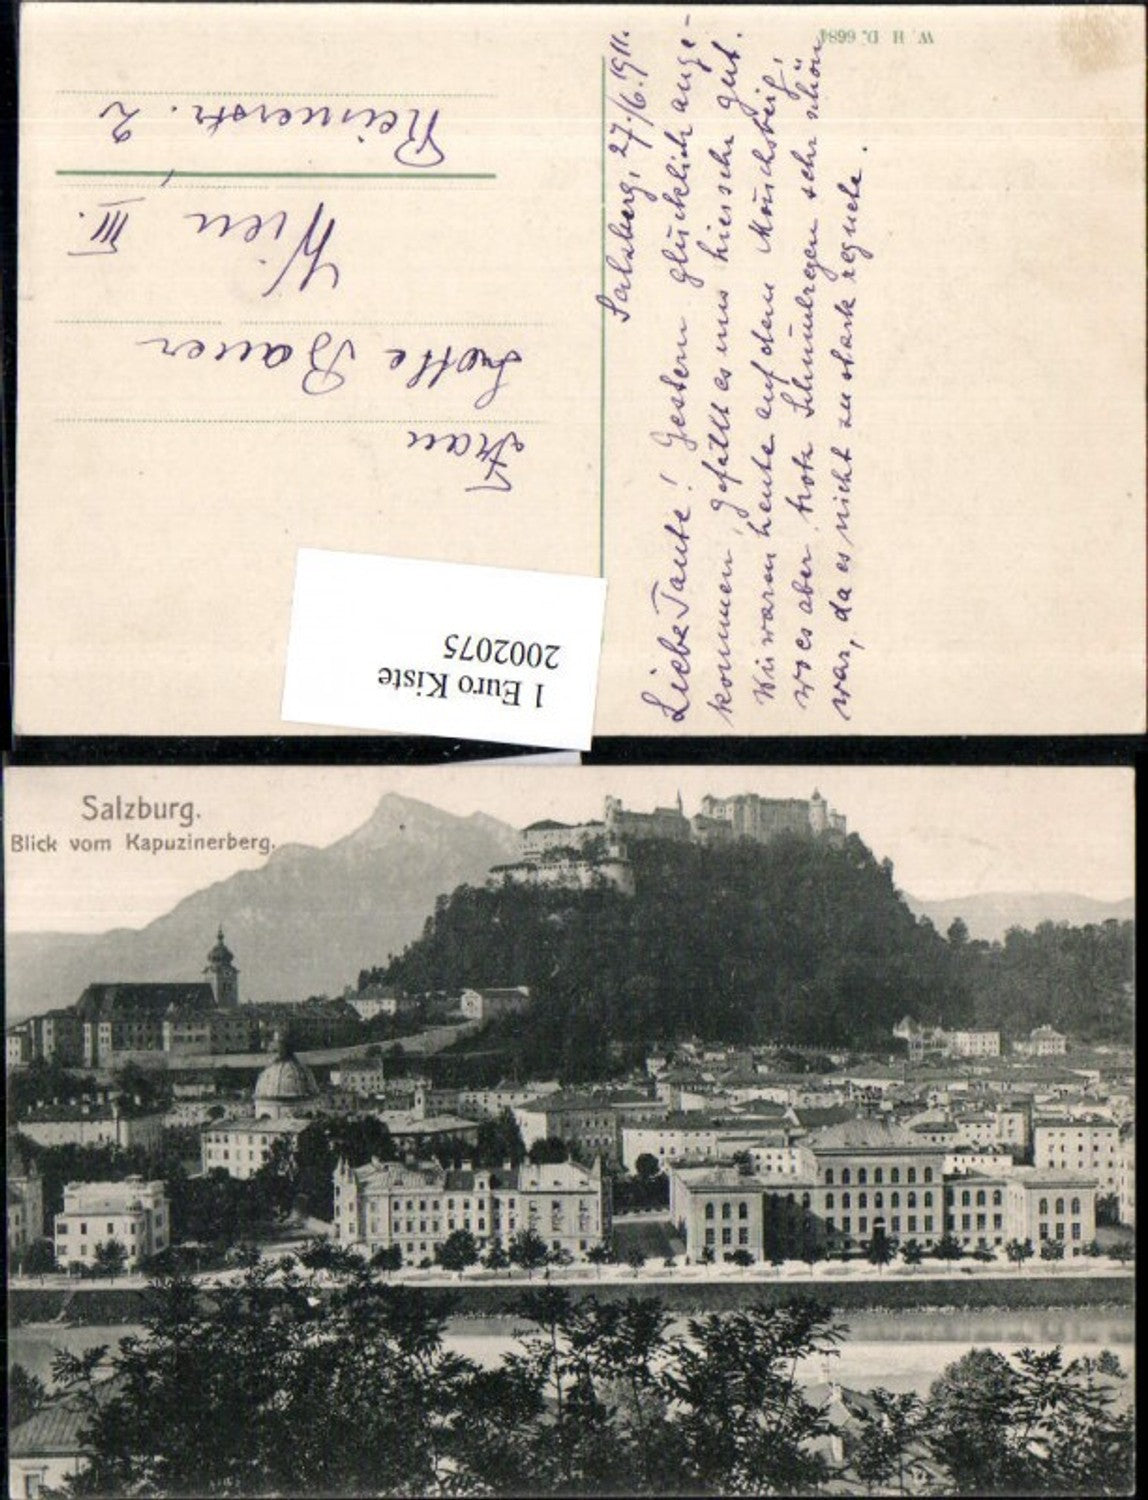 W. H. D. 6684
Salzburg, 27./6. 1911.
Liebe Tante! Gestern glücklich ange-
kommen, gefällt es uns hier sehr gut.
Wir waren heute auf dem Mönchsberg,
wo es aber trotz Schnürlregen sehr schön
war, da es nicht zu stark regnete.
Frau
Lotte Bauer
Wien III.
Reisnerstr. 2
1 Euro Kiste
2002075
Salzburg.
Blick vom Kapuzinerberg.